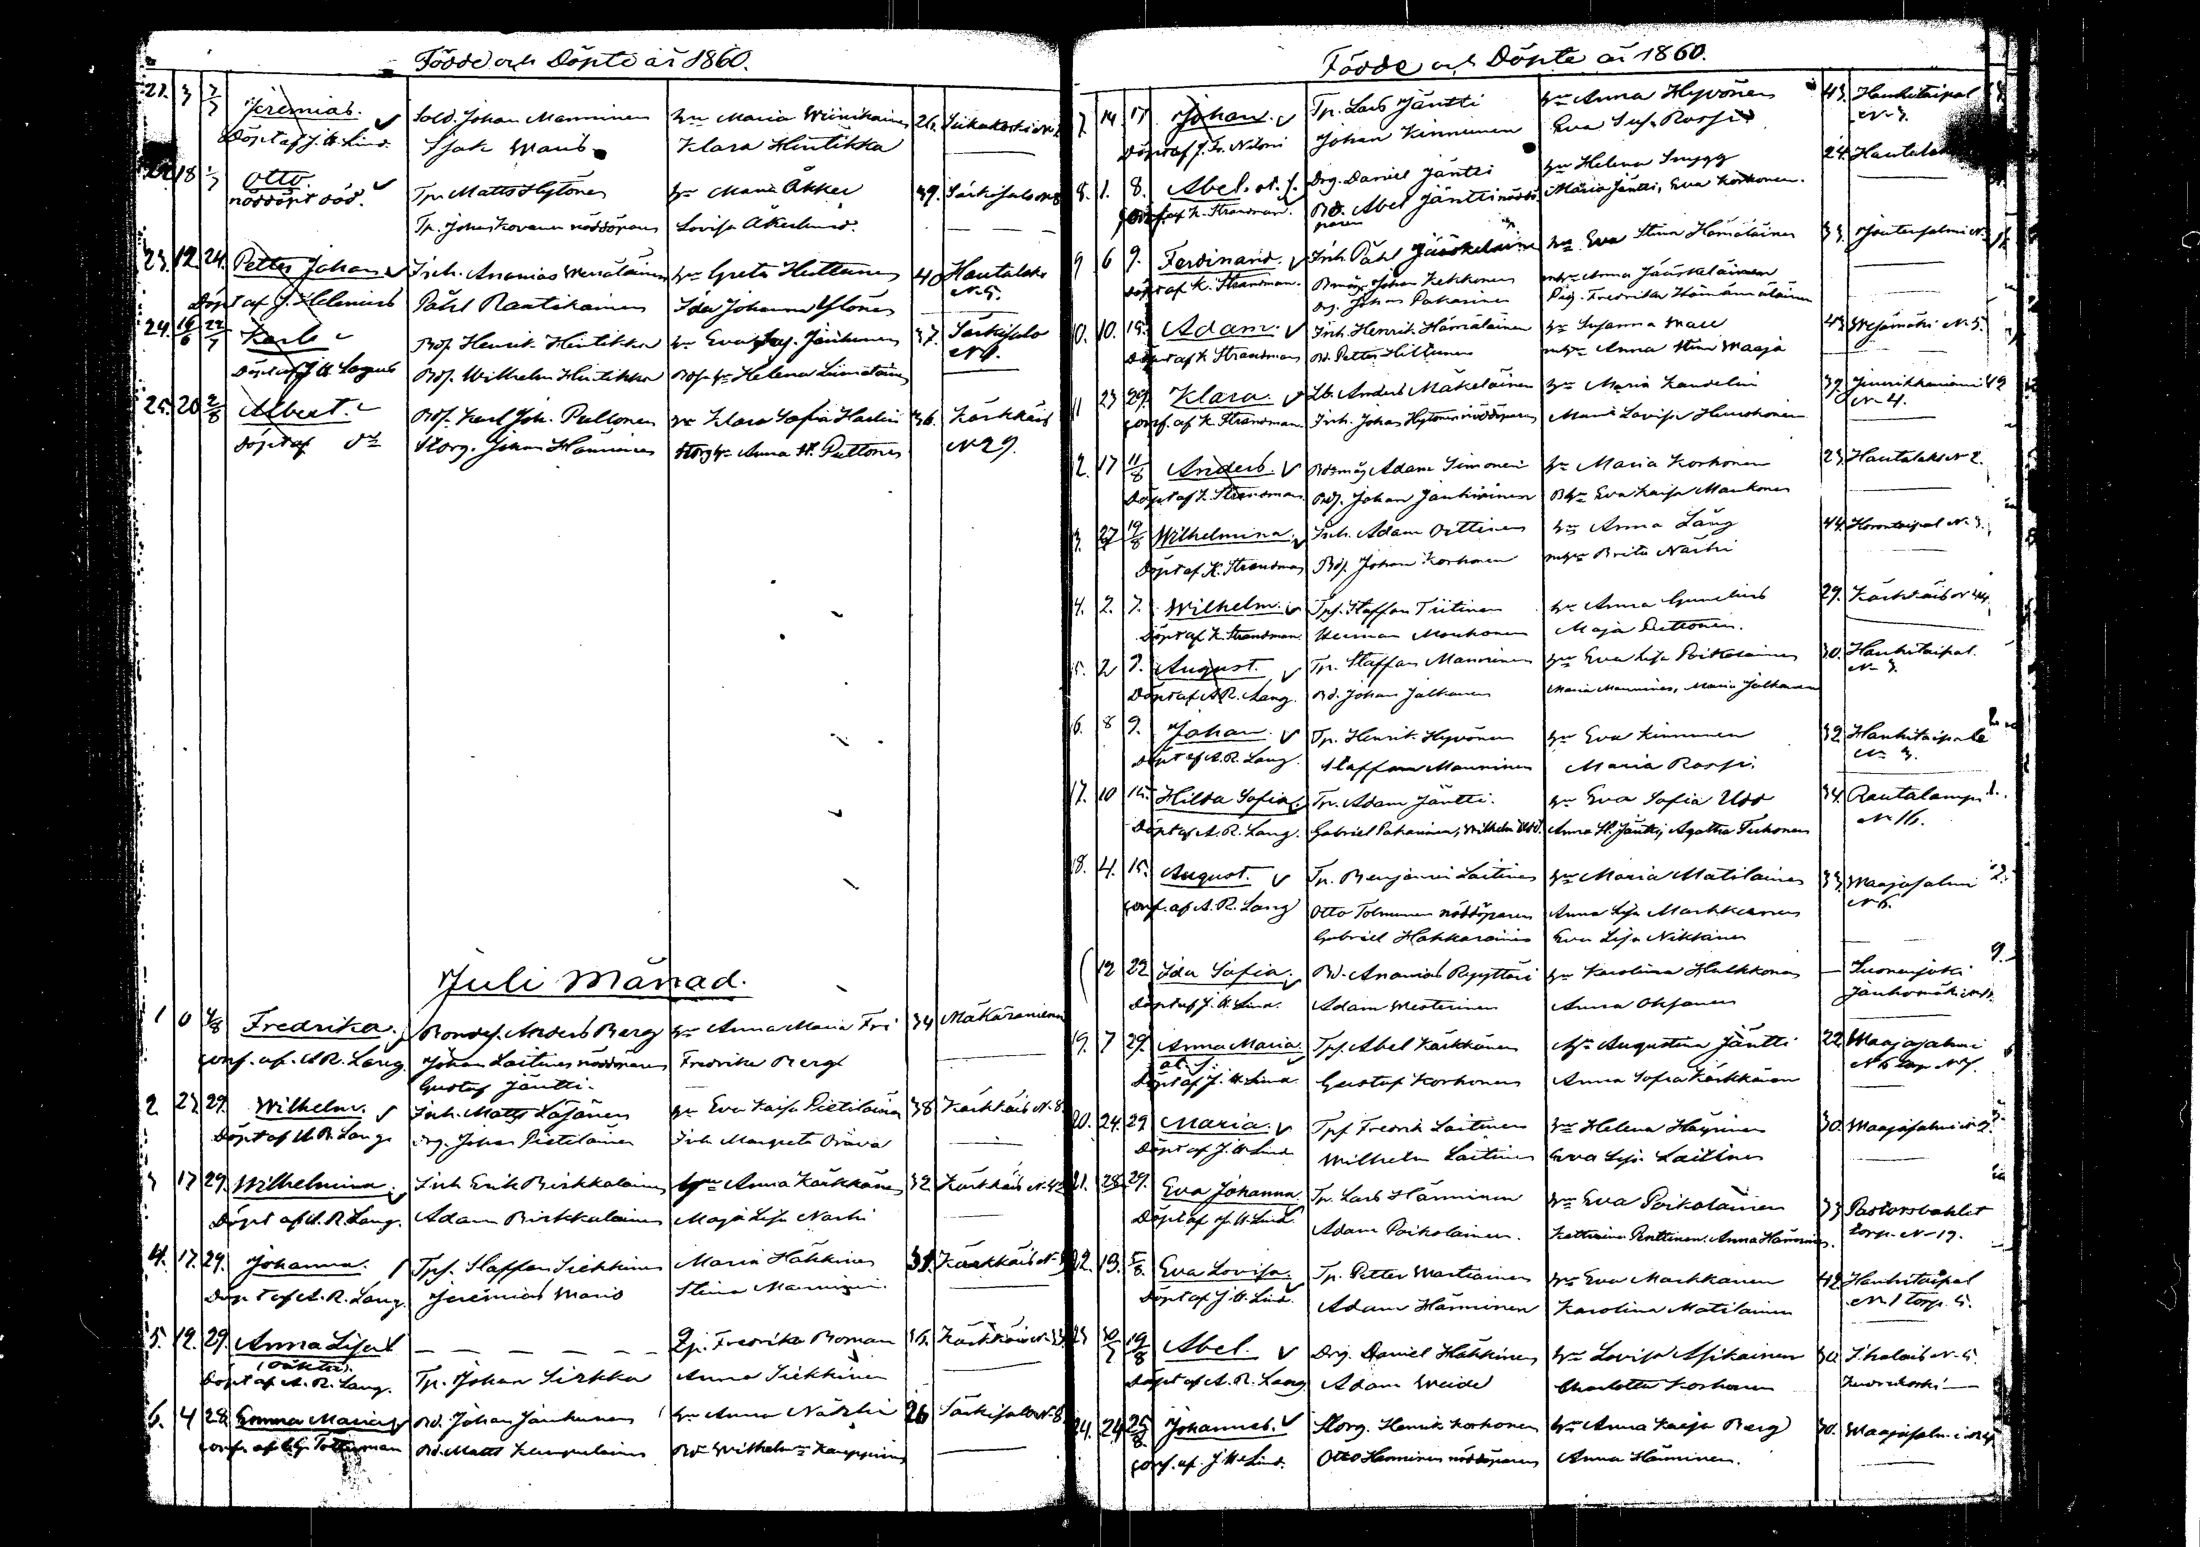 Födde och Döpte år 1860.
22. 3 7/7 Jeremias. Sold. Johan Manninen hu Maria Wiinikainen 26. N:
Döpt af J. W. Lind. Isak Maus Klara Hintikka
18 1/7 Otto. Tp. Matts Hytönen hu Maria Åkker 39. Särkisalo N:8
nöddöpt död. Tp. Johan Kovanen nöddöparen Lovisa Åkerlund.
23. 12 24. Petter Johan Inh. Ananias hu Greta Huttunen 40 Hautalaks N:5.
Döpt af J. Helenius Påhl Rautikainen Ida Johanna Ylönen
24. 19/6 22/7 Karl Bdf. Henrik Hintikka hu Eva Jäntunen 37. Särkisalo N:4.
Döpt af Bdf. Wilhelm Hintikka Bdf. hu Helena Liimatainen
25. 20 2/8 Albert. Bdf. Karl Joh. Puttonen hu Klara Sofia Harlin 36. Kärkkäis
döpt af do Storg. Johan Hänninen Storg hu Anna St. Puttonen N:29.
Juli Månad.
1 0 4/8 Fredrika. Bondes. Anders Berg hu Anna Maria Fri 34 Mäkäräniemi
conf. af A. R. Lang Johan Laitinen nöddöparen Fredrika Berg
Gustaf Jäntti.
2 23 29. Wilhelm. Inh. Matts hu Eva Kaisa Pietiläinen 38 Kärkkäis N:8
Döpt af A. R. Lang drg. Johan Pietiläinen Inh Margreta Orava
3 17 29. Wilhelmina. Inh Erik Pirkkalainen hu Anna Kärkkäinen 32 Kärkkäis N:42
Döpt af A. R. Lang. Adam Pirkkalainen Maja Lisa Narhi
4. 17. 29. Johanna. Tpf. Staffan Siekkinen Maria Häkkinen 39. Kärkkäis N:
Döpt af A. R. Lang. Jeremias Maus Stina Manninen
5. 12. 29. Anna Lisa — — — — — Qp. Fredrika Roman 36. Kärkkäis N:
(oäkta).
Döpt af A. R. Lang. Tp. Johan Sirkka Anna Siekkinen
6. 4 28 Emma Maria Bd. Johan Jäntunen hu Anna Närhi 26 Särkisalo N:8
conf. af Bd. Matts Bd. Wilhelm:a Kauppinen
Födde och Döpte år 1860.
7. 14 17 Johan. Tp. Lars Jäntti hu Anna Hyvönen 43. Hankitaipal N:3.
Döpt af J. Fr. Johan Kinnunen Eva Sus. Rossi
8. 1. 8. Abel. Drg. Daniel Jäntti hu Helena Snygg 24. Hautalaks
conf. af K. Strandman. Bd. Abel Jäntti nöddöparen Maria Jäntti, Eva Korhonen.
9 6 9. Ferdinand. Inh. Påhl Jääskeläinen hu Eva Stina Hämäläinen 33.
Döpt af K. Strandman. Johan Kekkonen Anna Jääskeläinen
drg. Johan Pakarinen Pig. Fredrika Hämäläinen
10. 10. 15. Adam. Inh. Henrik Hämäläinen hu Susanna 43 Vesamäki N:5.
Döpt af K. Strandman Bd. Petter Hiltunen Anna Stina Maaja
11 23 29. Klara. Lb. Anders Mäkeläinen hu Maria Kandelin 39. N:4.
conf. af K. Strandman. Inh. Johan Hytönen nöddöparen Maria Lovisa Huuskonen
12. 17 11/8 Anders. Bdsmåg Adam Simonen hu Maria Korhonen 23. Hautalaks N:2.
Döpt af K. Strandman. Bdf. Johan Janhunen Bhu Eva Kaisa Maukonen
13. 27 19/8 Wilhelmina. Inh. Adam Oittinen hu Anna Lång 44. N:3.
Döpt af K. Strandman Bdf. Johan Korhonen Brita Närhi
14. 2. 7. Wilhelm. Tpf. Staffan Tiitinen hu Anna Gumelius 29. Kärkkäis N:44.
Döpt af K. Strandman. Herman Moukonen Maja Puttonen.
15. 2 9. August. Tp. Staffan Manninen hu Eva Lisa Poikolainen 30. Hankitaipal. N:3.
Döpt af A. R. Lang. Bd. Johan Jalkanen Maria Manninen, Maria Jalkanen
16. 8 9. Johan. Tp. Henrik Hyvönen hu Eva Kinnunen 32 Hankitaipale N:3.
Döpt af A. R. Lang. Staffan Manninen Maria Rossi.
17. 10 15. Hilda Sofia. Tp. Adam Jäntti. hu Eva Sofia Udd 34. Rautalampi N:16.
Döpt af A. R. Lang. Gabriel Pakarinen, Wilhelm Udd. Anna St. Jäntti, Agatha Tuhonen
18. 4. 15. August. Tp. Benjamin Laitinen hu Maria Matilainen 33. Maajasalmi N:6.
conf. af A. R. Lang Otto Tolmunen nöddöparen Anna Lisa Markkanen
Gabriel Hakkarainen Eva Lisa Niktanen
12 22 Ida Sofia. Bd. Ananias Ryyttäri hu Karolina Hulkkonen — Suonenjoki
Döpt af J. W. Lind. Adam Westerinen Anna Oksanen
19. 7 29. Anna Maria. Tpf. Abel Kärkkäinen Augustina Jäntti 22 Maajasalmi
Döpt af J. W. Lind. Gustaf Korhonen Anna Sofia Kärkkäinen
20. 24. 29 Maria. Tpf. Fredrik Laitinen hu Helena Häyrinen 30. Maajasalmi N:2.
Döpt af J. W. Lind Wilhelm Laitinen Eva Lisa Laitinen
21. 28. 29. Eva Johanna. Tp. Lars Hänninen hu Eva Poikolainen 33 Pastorsbohlet
Döpt af J. W. Lind. Adam Poikolainen. Kattarina Penttinen. Anna Hänninen. torp. N:19.
22. 13. 5/8 Eva Lovisa. Tp. Petter Martiainen hu Eva Markkanen 42. Hankitaipal
Döpt af J. W. Lind. Adam Hänninen Karolina Matilainen N:1 torp. 5.
23 30/7 19/8 Abel. Drg. Daniel Häkkinen hu Lovisa Asikainen 30. N:5.
Döpt af A. R. Lang Adam Weide Charlotta Korhonen
24. 24 25/8 Johannes. Storg. Henrik Korhonen hu Anna Kaisa Berg 30. Maajasalmi N:4
conf. af J. W. Lind. Otto Hänninen nöddöparen Anna Hänninen.